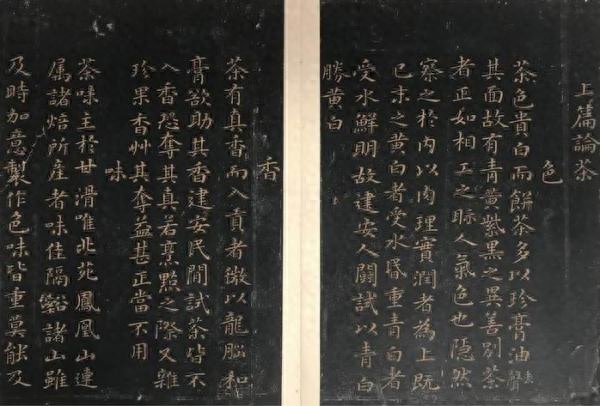 上篇論茶
色
茶色貴白而餅茶多以珍膏油去聲
其面故有青黃紫黑之異善別茶
者正如相工之眎人氣色也隱然
察之於內以肉理實潤者為上既
已末之黃白者受水昏重青白者
受水鮮明故建安人鬪試以青白
勝黃白
香
茶有真香而入貢者微以龍腦和
膏欲助其香建安民間試茶皆不
入香恐奪其真若烹點之際又雜
珍果香艸其奪益甚正當不用
味
茶味主於甘滑唯北苑鳳凰山連
屬諸焙所產者味佳隔谿諸山雖
及時加意製作色味皆重莫能及